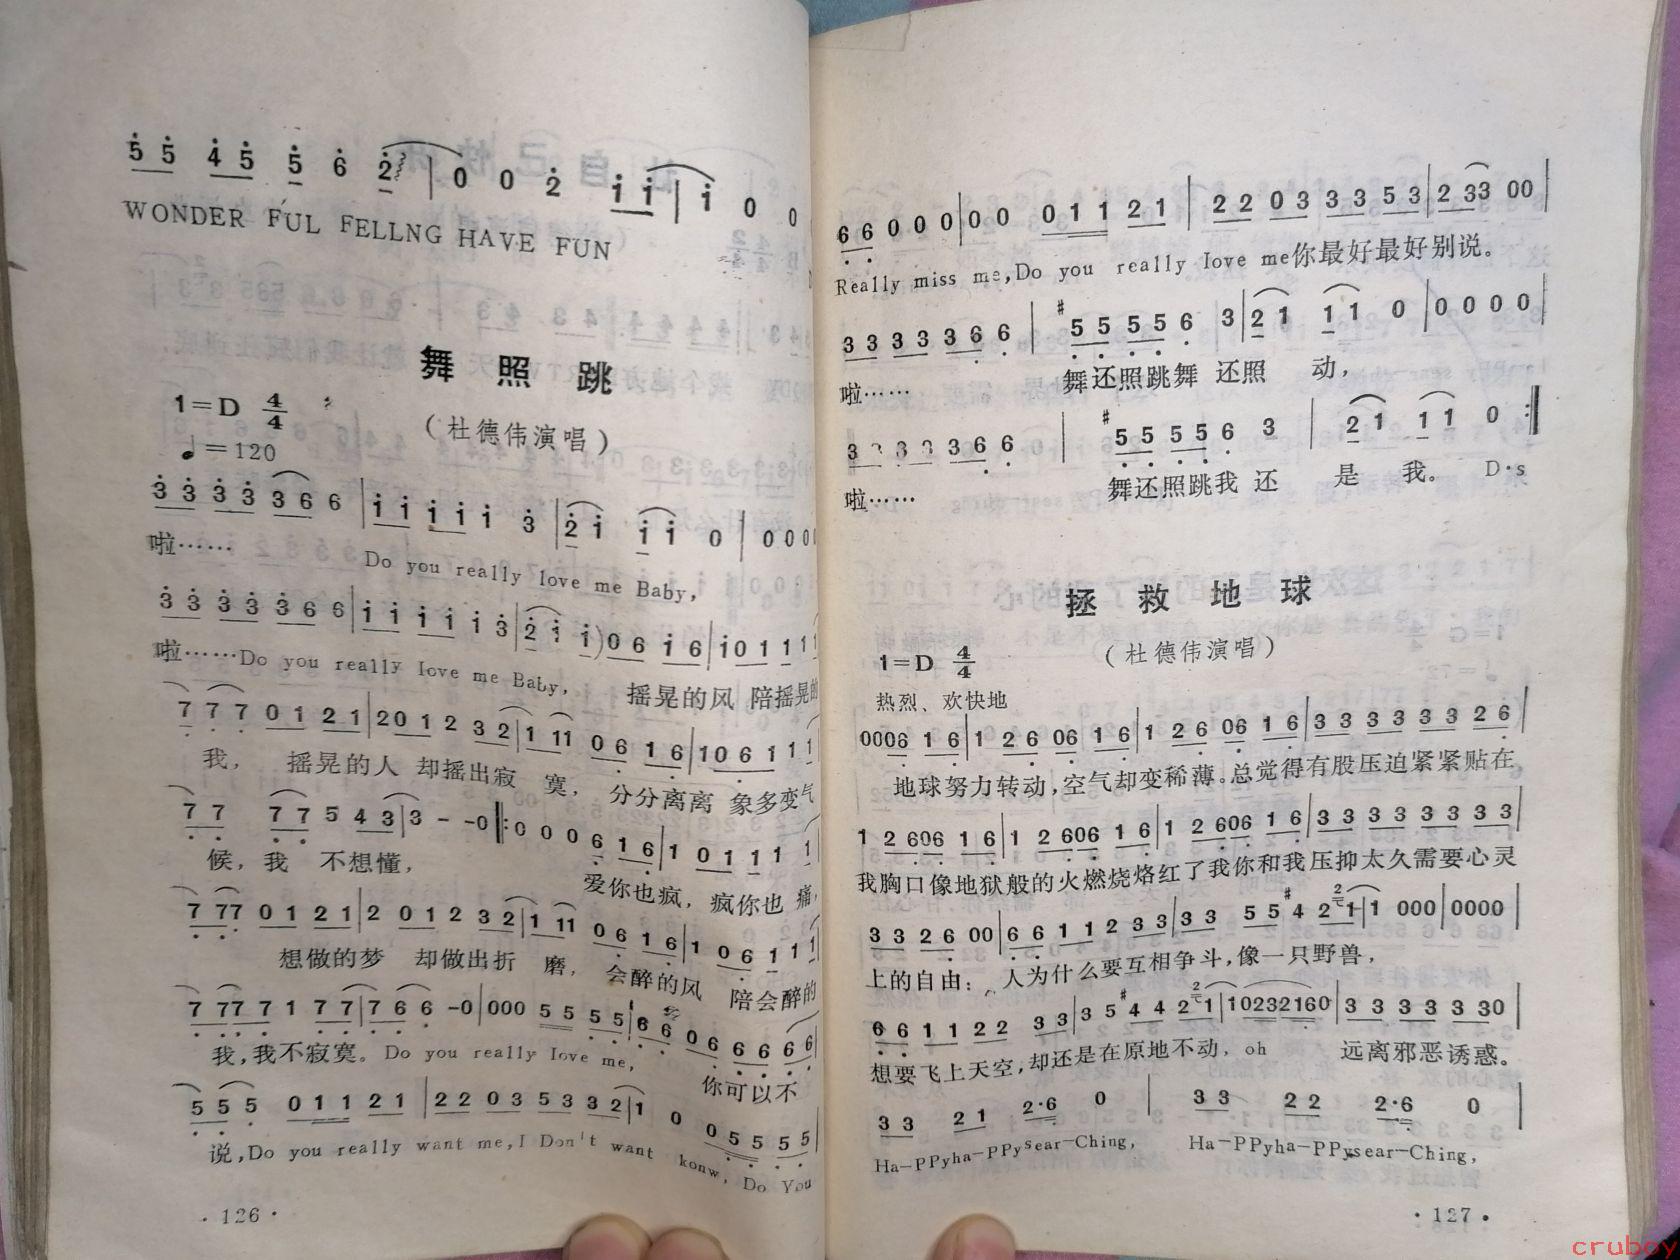 5 5 4 5 5 6 2 | 0 0 2 1 1 | 1 0 0
WONDER FUL FELLNG HAVE FUN
舞照跳
1=D 4/4
(杜德伟演唱)
♩=120
3 3 3 3 3 6 6 | 1 1 1 1 1 3 | 2 1 1 1 0 | 0 0 0 0
啦…… Do you really love me Baby,
3 3 3 3 3 6 6 | 1 1 1 1 1 3 | 2 1 1 ) 0 6 1 6 | 1 0 1 1 1
啦……Do you really Iove me Baby, 摇晃的风 陪摇晃的
7 7 7 0 1 2 1 | 2 0 1 2 3 2 | 1 1 1 0 6 1 6 | 1 0 6 1 1 1
我, 摇晃的人 却摇出寂 寞, 分分离离 象多变气
7 7 7 7 5 4 3 | 3 - - 0 ‖: 0 0 0 6 1 6 | 1 0 1 1 1 1
候,我 不想懂, 爱你也疯,疯你也 痛,
7 7 7 0 1 2 1 | 2 0 1 2 3 2 | 1 1 1 0 6 1 6 | 1 0 6 1 1 1
想做的梦 却做出折 磨, 会醉的风 陪会醉的
7 7 7 7 1 7 7 | 7 6 6 - 0 | 0 0 0 5 5 5 5 | 6 6 0 6 6 6 6 6
我,我不寂寞。Do you really Iove me, 你可以不
5 5 5 0 1 1 2 1 | 2 2 0 3 5 3 3 2 | 1 0 0 5 5 5 5
说,Do you really want me,I Don't want konw, Do You
·126·
6 6 0 0 0 | 0 0 0 1 1 2 1 | 2 2 0 3 3 3 5 3 | 2 3 3 0 0 |
Really miss me,Do you really Iove me你最好最好别说。
3 3 3 3 3 6 6 | #5 5 5 5 6 3 | 2 1 1 1 0 | 0 0 0 0 |
啦…… 舞还照跳舞 还照 动,
3 3 3 3 3 6 6 | #5 5 5 5 6 3 | 2 1 1 1 0 :‖
啦…… 舞还照跳我 还 是 我。 D·s
拯救地球
(杜德伟演唱)
1=D 4/4
热烈、欢快地
0006 1 6 | 1 2 6 06 1 6 | 1 2 6 06 1 6 | 3 3 3 3 3 3 2 6 |
地球努力转动,空气却变稀薄。总觉得有股压迫紧紧贴在
1 2 606 1 6 | 1 2 606 1 6 | 1 2 606 1 6 | 3 3 3 3 3 3 3 3 |
我胸口像地狱般的火燃烧烙红了我你和我压抑太久需要心灵
3 3 2 6 00 | 6 6 1 1 2 3 3 | 3 3 5 5 #4 2 1 | 1 000 | 0000 |
上的自由; 人为什么要互相争斗,像一只野兽,
6 6 1 1 2 2 3 3 | 3 5 #4 4 2 1 | 10232160 | 3 3 3 3 3 30 |
想要飞上天空,却还是在原地不动, oh 远离邪恶诱惑。
3 3 2 1 2·6 0 | 3 3 2 2 2·6 0 |
Ha—PPyha—PPysear—Ching, Ha—PPyha—PPysear—Ching,
·127·
cruboy